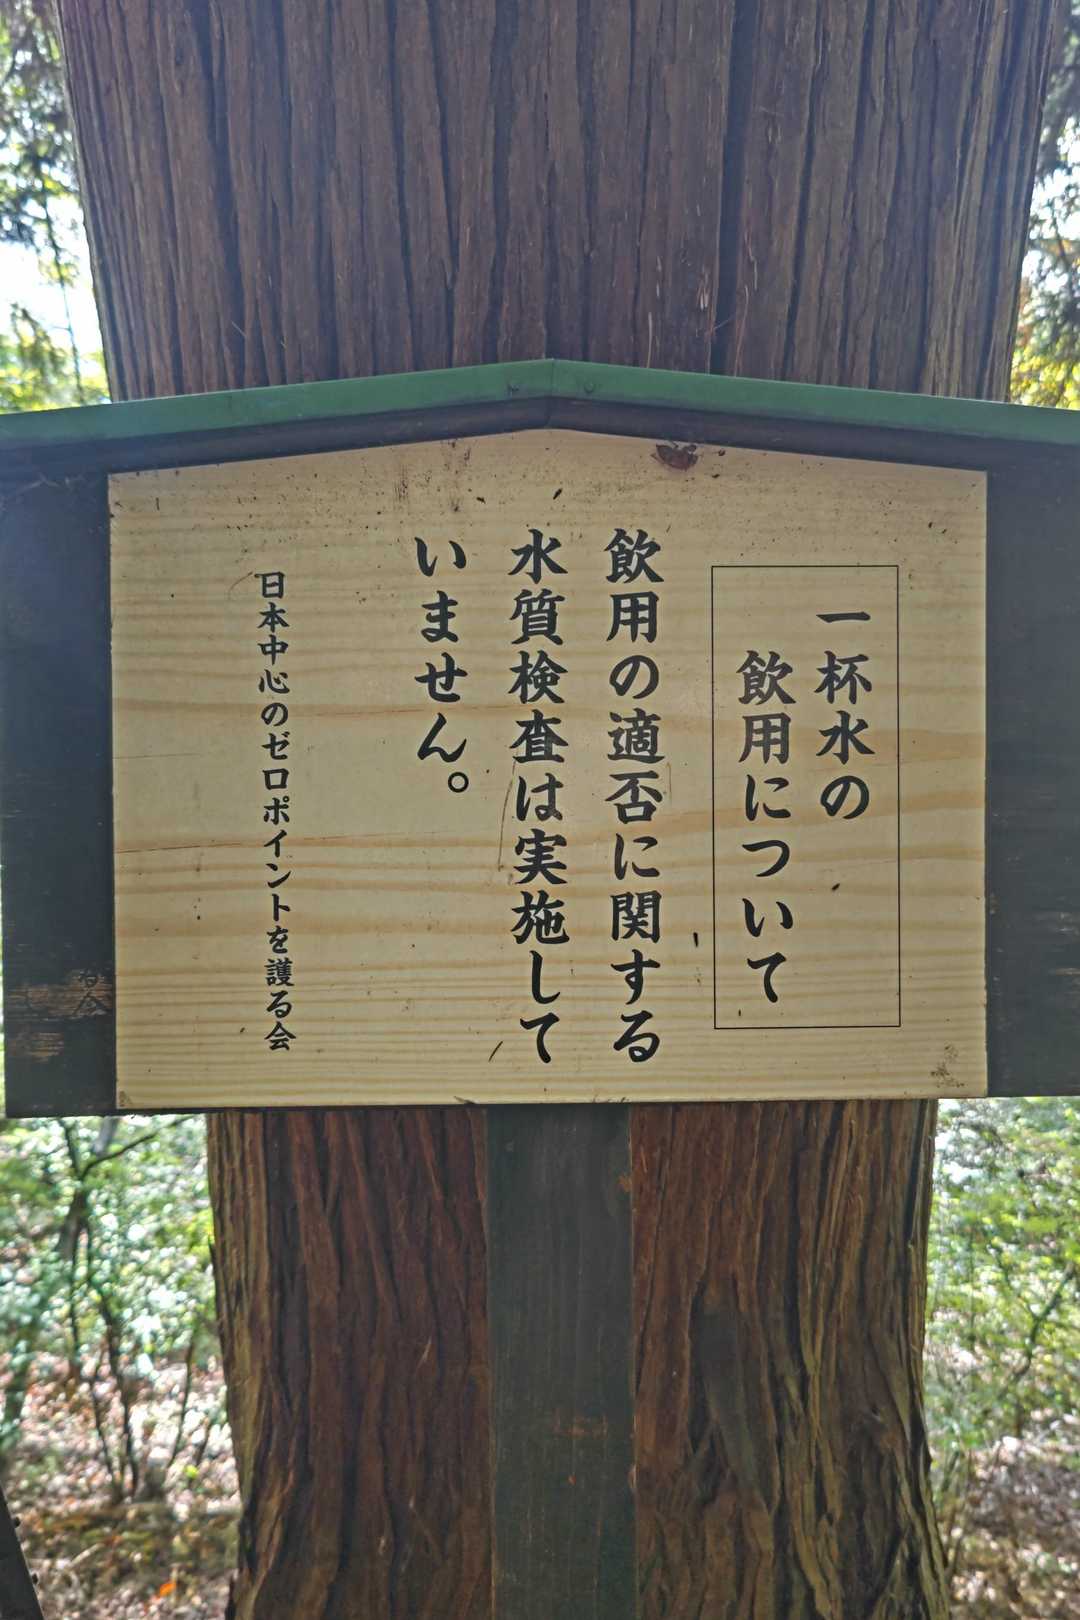 一杯水の
飲用について
飲用の適否に関する
水質検査は実施して
いません。
日本中心のゼロポイントを護る会
る会